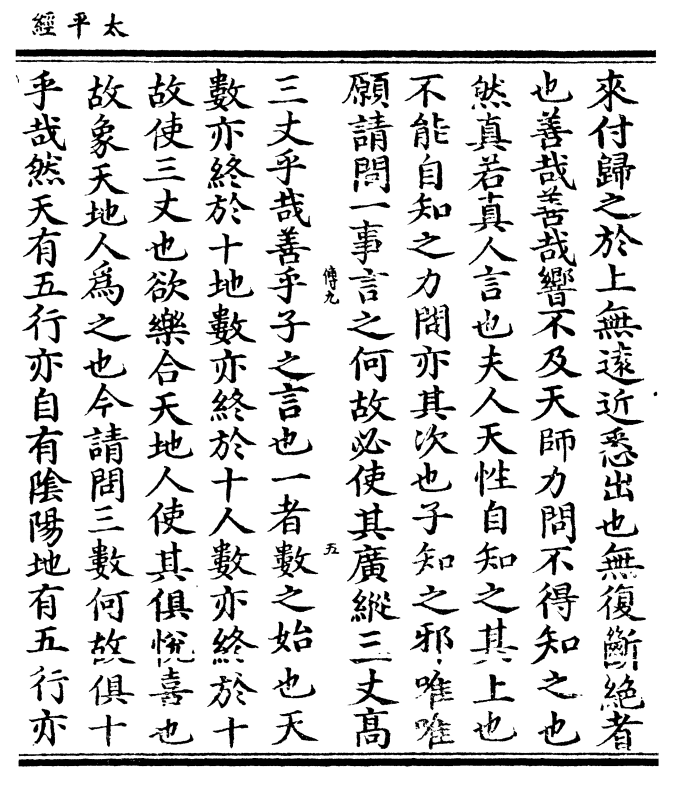 太平經
來付歸之於上無遠近悉出也無復斷絕者
也善哉善哉響不及天師力問不得知之也
然真若真人言也夫人天性自知之其上也
不能自知之力問亦其次也子知之邪唯唯
願請問一事言之何故必使其廣縱三丈高
傳九
五
三丈乎哉善乎子之言也一者數之始也天
數亦終於十地數亦終於十人數亦終於十
故使三丈也欲樂合天地人使其俱悅喜也
故象天地人爲之也今請問三數何故俱十
乎哉然天有五行亦自有陰陽地有五行亦